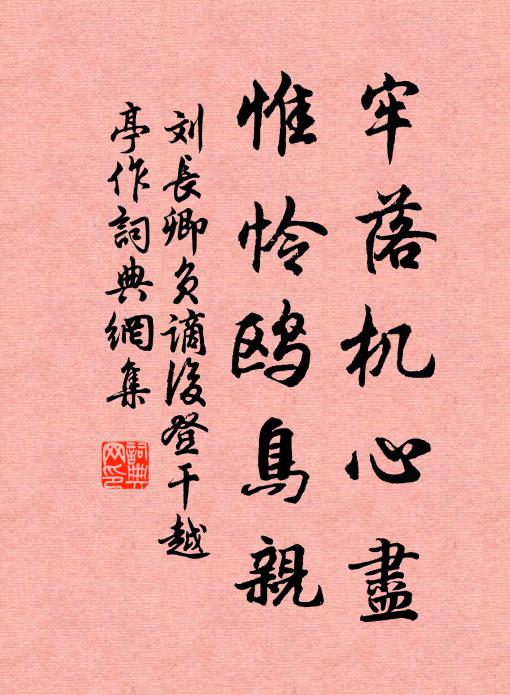 牢落机心盡
惟怜鸥鳥親
刘長卿负謫後登干越
亭作詞典網集
詞典
网印